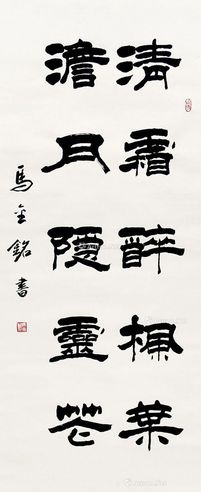 清霜醉楓葉
澹月隱靈花
馬金銘書